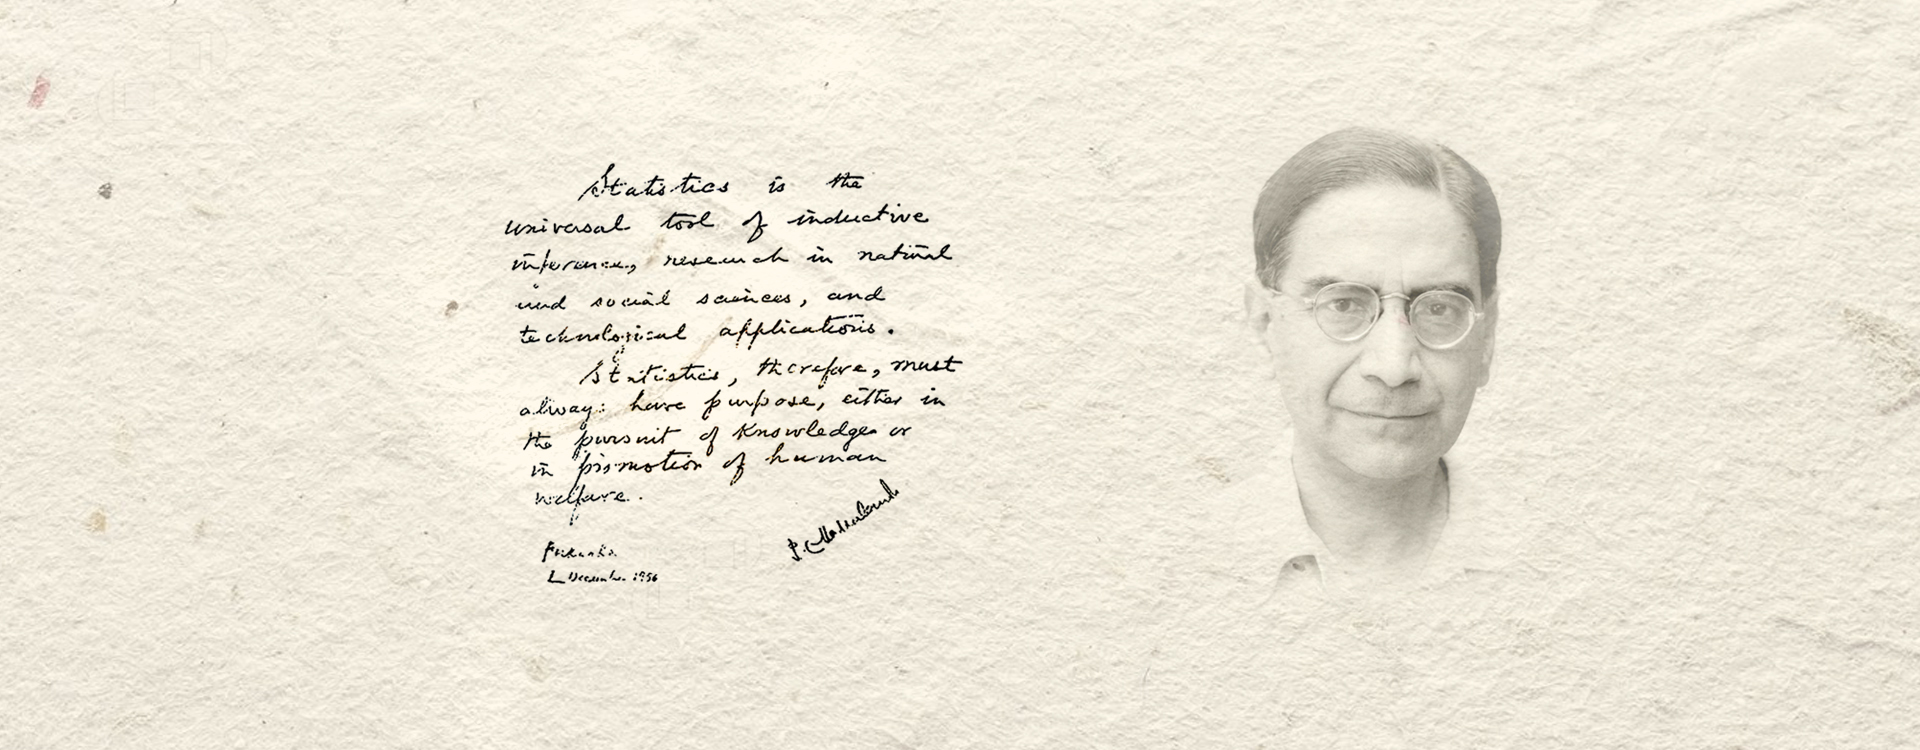 Statistics is the
universal tool of inductive
inference, research in natural
and social sciences, and
technological applications.
Statistics, therefore, must
always have purpose, either in
the pursuit of knowledge or
in promotion of human
welfare.
P. C. Mahalanobis
Fukuoka
December 1956